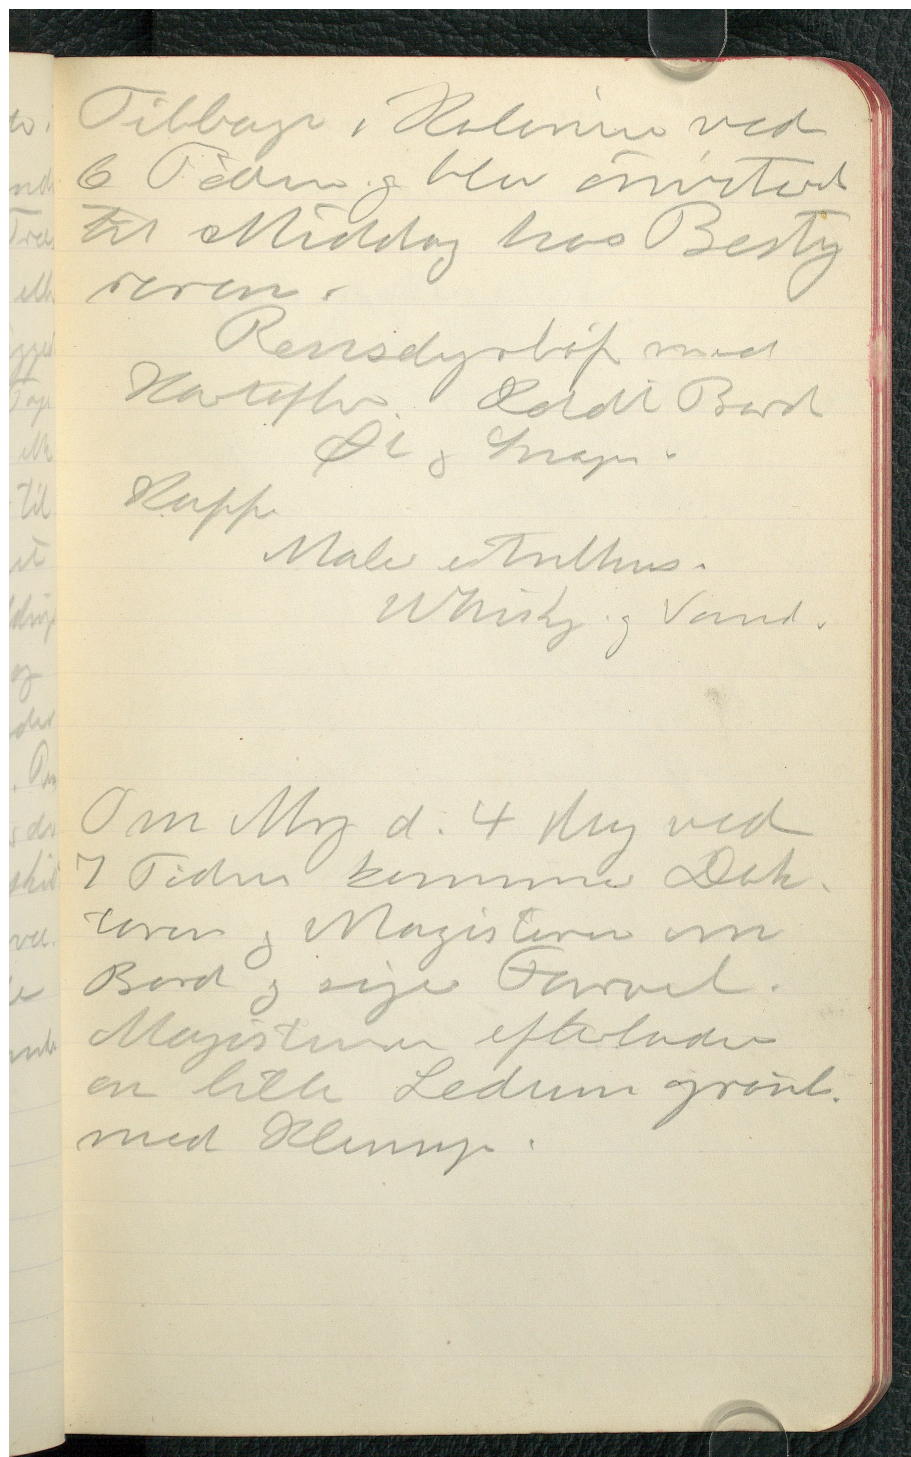 Tilbage i Kolonien ved
6 Tiden og blev inviteret
til Middag hos Besty
reren.
Rensdyrbøf med
Kartofler. Koldt Bord
Øl og Snaps.
Kaffe
Whisky og Vand.
Om Mrg d. 4 Aug ved
7 Tiden kommer Dok-
toren og Magisteren om
Bord og siger Farvel.
Magisteren efterlader
en lille Ledum grønl.
med Klump.